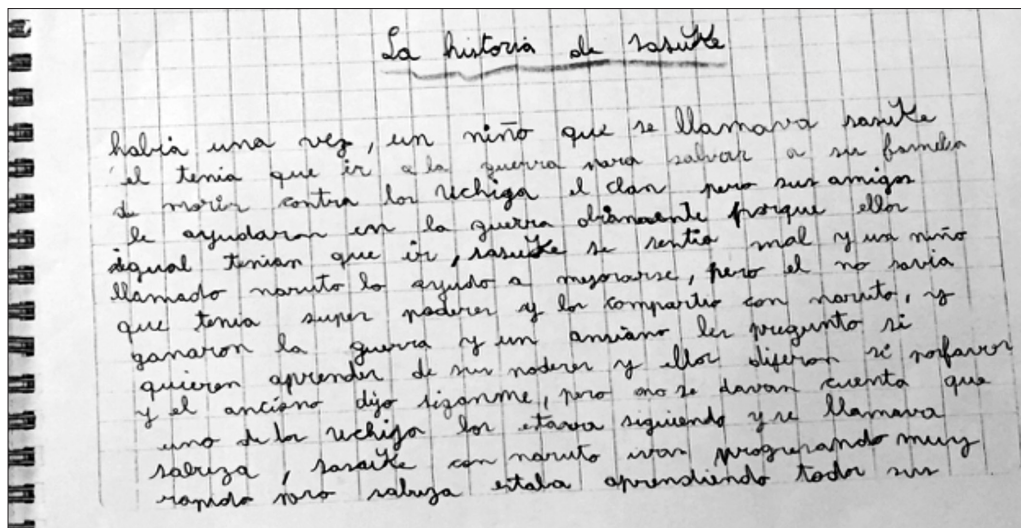 La historia de sasuke
habia una vez, un niño que se llamava sasuke
el tenia que ir a la guerra para salvar a su familia
de morir contra los uchiga el clan pero sus amigos
le ayudaron en la guerra porque ellos
igual tenian que ir, sasuke se sentia mal y un niño
llamado naruto lo ayudo a mejorarse, pero el no savia
que tenia super poderes y los compartio con naruto, y
ganaron la guerra y un ansiano les pregunto si
quieren aprender de sus poderes y ellos dijeron si porfavor
y el anciano dijo siganme, pero no se davan cuenta que
uno de los uchiga los estava siguiendo y se llamava
sabuza, sasuke con naruto ivan progresando muy
rapido pero sabuza estaba aprendiendo todos sus